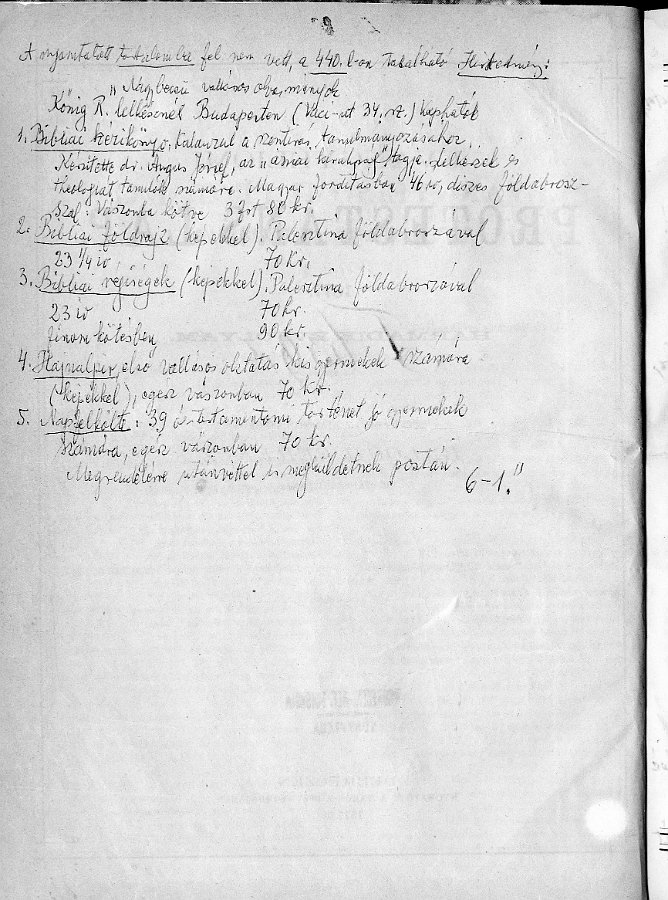 A nyomtatott tartalomba fel nem vett, a 440. l-on található Hirdetmény:
"Nagybecsű vallásos olvasmányok
König R. lelkésznél Budapesten (Váci-út 34. sz.) kaphatók
1. Bibliai kézikönyv. Kalauzul a szentírás tanulmányozásához.
Készítette dr. Angus József, az " társaság" tagja. Lelkészek és
theologiát tanulók számára. Magyar fordításban 46 ív, díszes földabrosz-
szal. Vászonba kötve 3 frt 80 kr.
2. Bibliai földrajz (képekkel). Palestina földabroszával
23 1/4 ív, 70 kr.
3. Bibliai régiségek (képekkel). Palestina földabroszával
23 ív 70 kr.
finom kötésben 90 kr.
4. Hajnalpír, első vallásos oktatás kis gyermekek számára
(képekkel), egész vászonban 70 kr.
5. Napfelkölte: 39 ó testamentomi történet jó gyermekek
számára, egész vászonban 70 kr.
Megrendelésre utánvéttel is megküldetnek postán.
6-1."